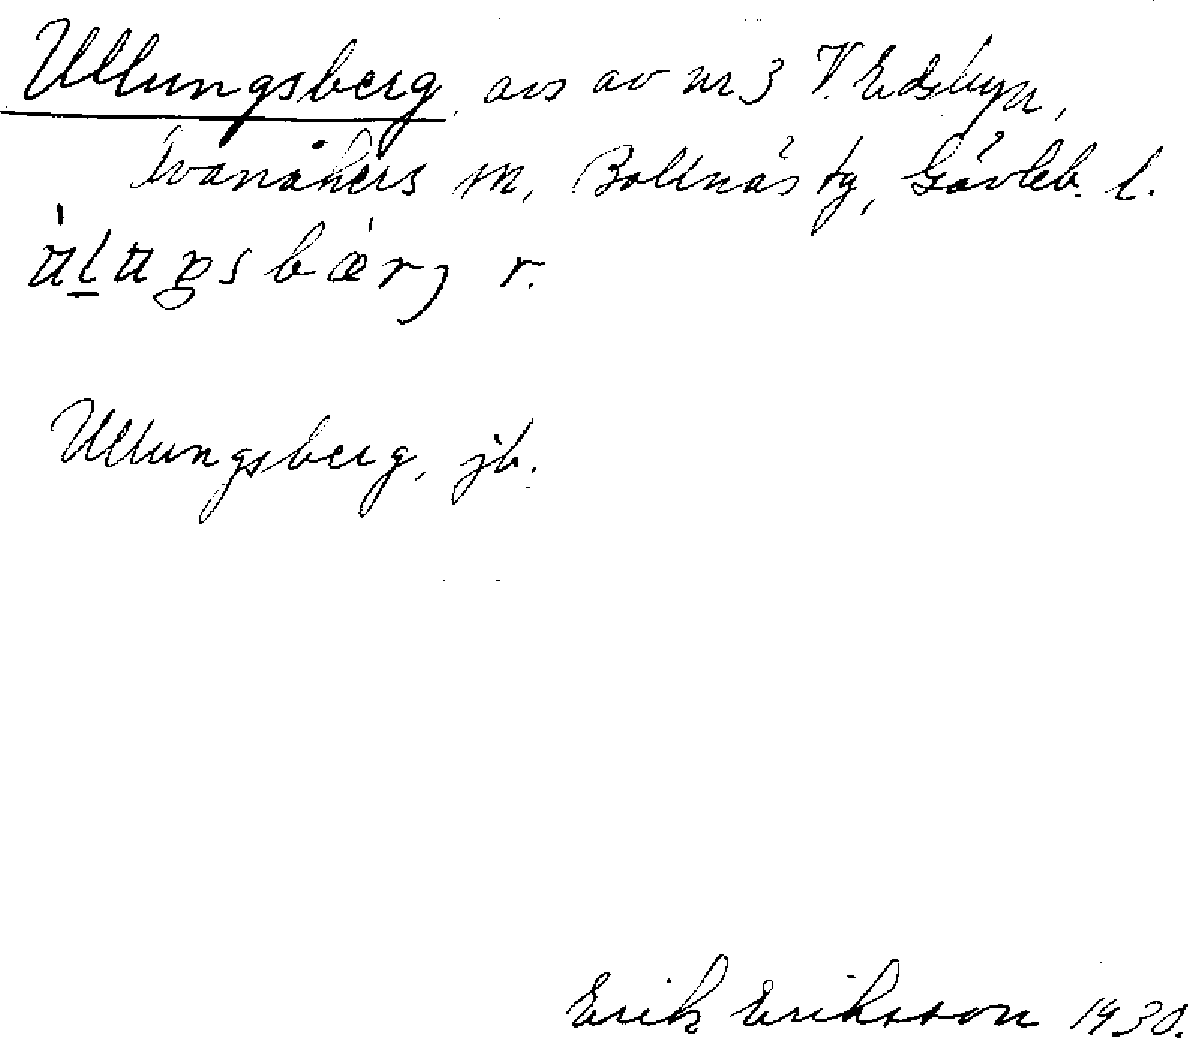 Ullungsberg, avs av nr 3 V. Edsbyn,
Svanåkers m, Bollnäs tg, Gävleb. l.
r.
Ullungsberg, jb.
Erik Eriksson 1930.